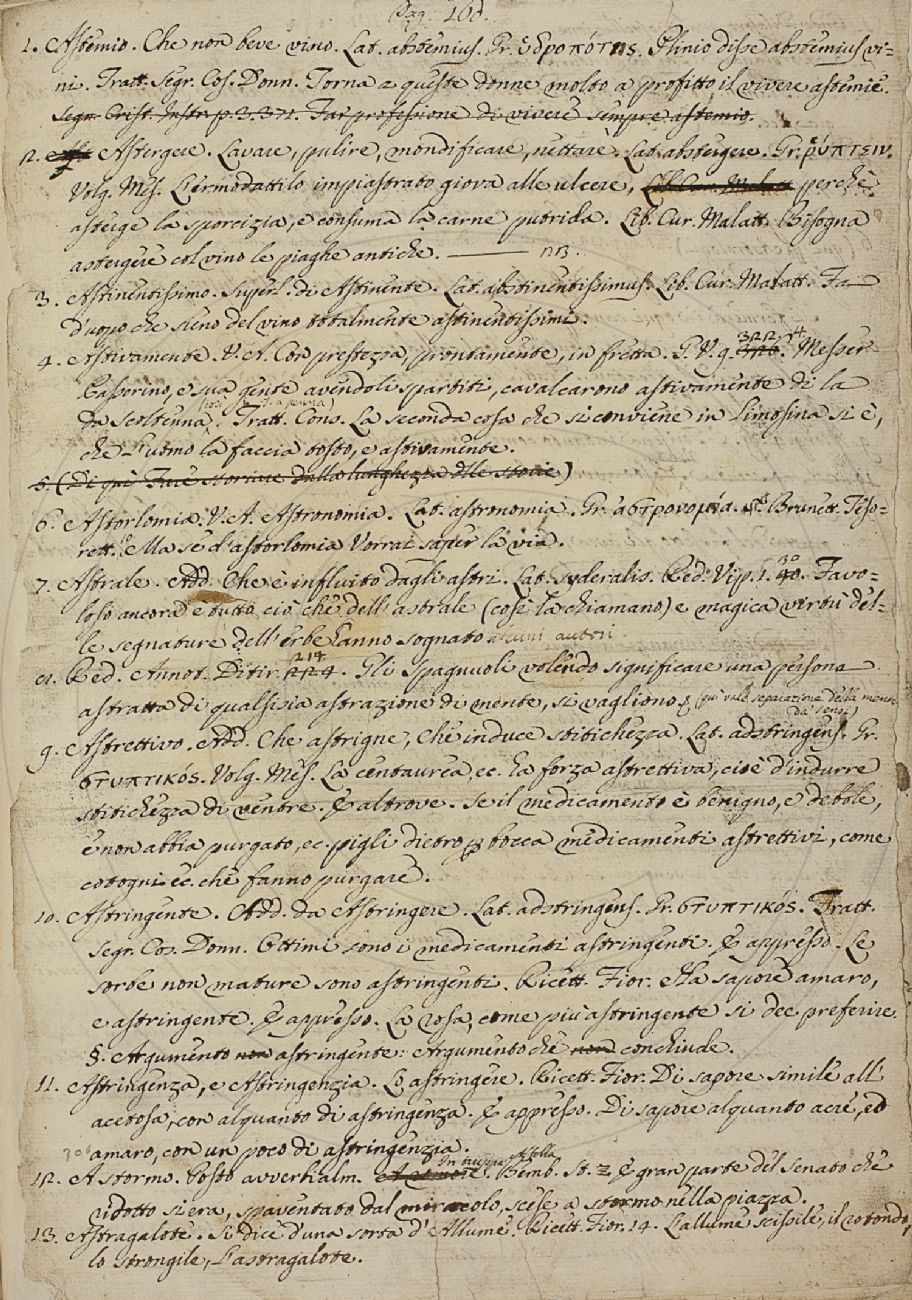 Pag. 168.
1. Astemio. Che non beve vino. Lat. abstemius. Gr. ὑδροπότης. Plinio disse abstemius vi=
ni. Tratt. Segr. Cos. Donn. Torna a queste donne molto a profitto il vivere astemie.
Segn. Crist. Instr. p. 3. 37. Far professione di vivere sempre astemio.
2. Astergere. Lavare, pulire, mondificare, nettare. Lat. abstergere. Gr. ῥύπτειν.
Volg. Mes. L'ermodattilo impiastrato giova alle ulcere, Lib. Cur. Malatt. perchè
asterge la sporcizia, e consuma la carne putrida. Lib. Cur. Malatt. Bisogna
astergere col vino le piaghe antiche. —— NB.
3. Astinentissimo. Superl. di Astinente. Lat. abstinentissimus. Lib. Cur. Malatt. Fa
d'uopo che sieno del vino totalmente astinentissimi.
4. Astivamente. V. A. Con prestezza, prontamente, in fretta. G. V. 9. 322. 4. Messer
Passerino, e sua gente avendoli spartiti, cavalcarono astivamente di la
da Scoltenna. Tratt. Cons. La seconda cosa che si conviene in Limosina si è,
che l'uomo la faccia tosto, e astivamente.
5. (Di quì Fare storiare dalla lunghezza delle storie)
6. Astorlomia. V. A. Astronomia. Lat. astronomia. Gr. ἀστρονομία. Brunett. Teso=
rett. Ma se d'astorlomia Vorrai saper la via.
7. Astrale. Add. Che è influito dagli astri. Lat. syderalis. Red. Vip. 1. 30. Favo=
loso ancora è tutto ciò che dell'astrale (così la chiamano) e magica virtù del=
le segnature dell'erbe hanno sognato alcuni autori.
8. Red. Annot. Ditir. 214. Gli Spagnuoli volendo significare una persona
astratta di qualsisia astrazione di mente, si vagliono, &c. (qui vale separazione della mente
da' sensi)
9. Astrettivo. Add. Che astrigne, che induce stitichezza. Lat. adstringens. Gr.
στυπτικός. Volg. Mes. La centaurea, ec. ha forza astrettiva, cioè d'indurre
stitichezza di ventre. E altrove. Se il medicamento è benigno, e debole,
e non abbia purgato, ec. pigli dietro per bocca medicamenti astrettivi, come
cotogni ec. che fanno purgare.
10. Astringente. Add. da Astringere. Lat. adstringens. Gr. στυπτικός. Tratt.
Segr. Cos. Donn. Ottimi sono i medicamenti astringenti. E appresso. Le
sorbe non mature sono astringenti. Ricett. Fior. Ha sapore amaro,
e astringente. E appresso. La rosa, come più astringente si dee preferire.
§. Argumento non astringente: Argumento che non conchiude.
11. Astringenza, e Astringenzia. Lo astringere. Ricett. Fior. Di sapore simile all'
acetosa, con alquanto di astringenza. E appresso. Di sapore alquanto acre, ed
amaro, con un poco di astringenzia.
12. A stormo. Posto avverbialm. In truppa, A folla. Bemb. St. 2. E gran parte del Senato che
ridotto si era, spaventato dal miracolo, scese a stormo nella piazza.
13. Astragalote. Si dice d'una sorta d'Allume. Ricett. Fior. 14. L'allume scissile, il rotondo,
lo strongile, l'astragalote.